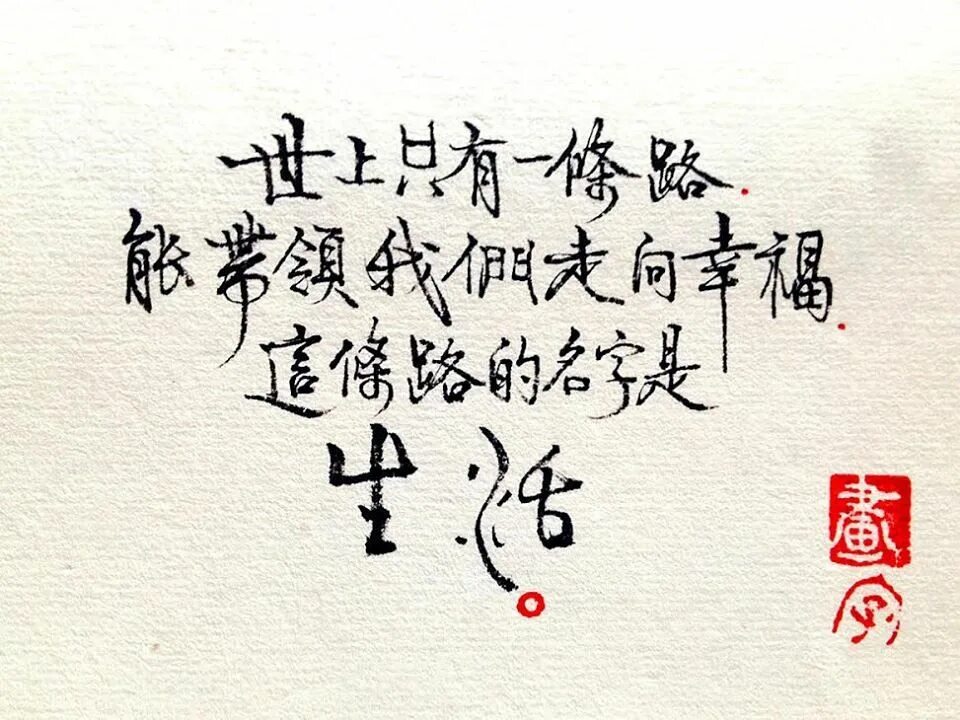 世上只有一條路.
能帶領我們走向幸福.
這條路的名字是
生活。
畫字